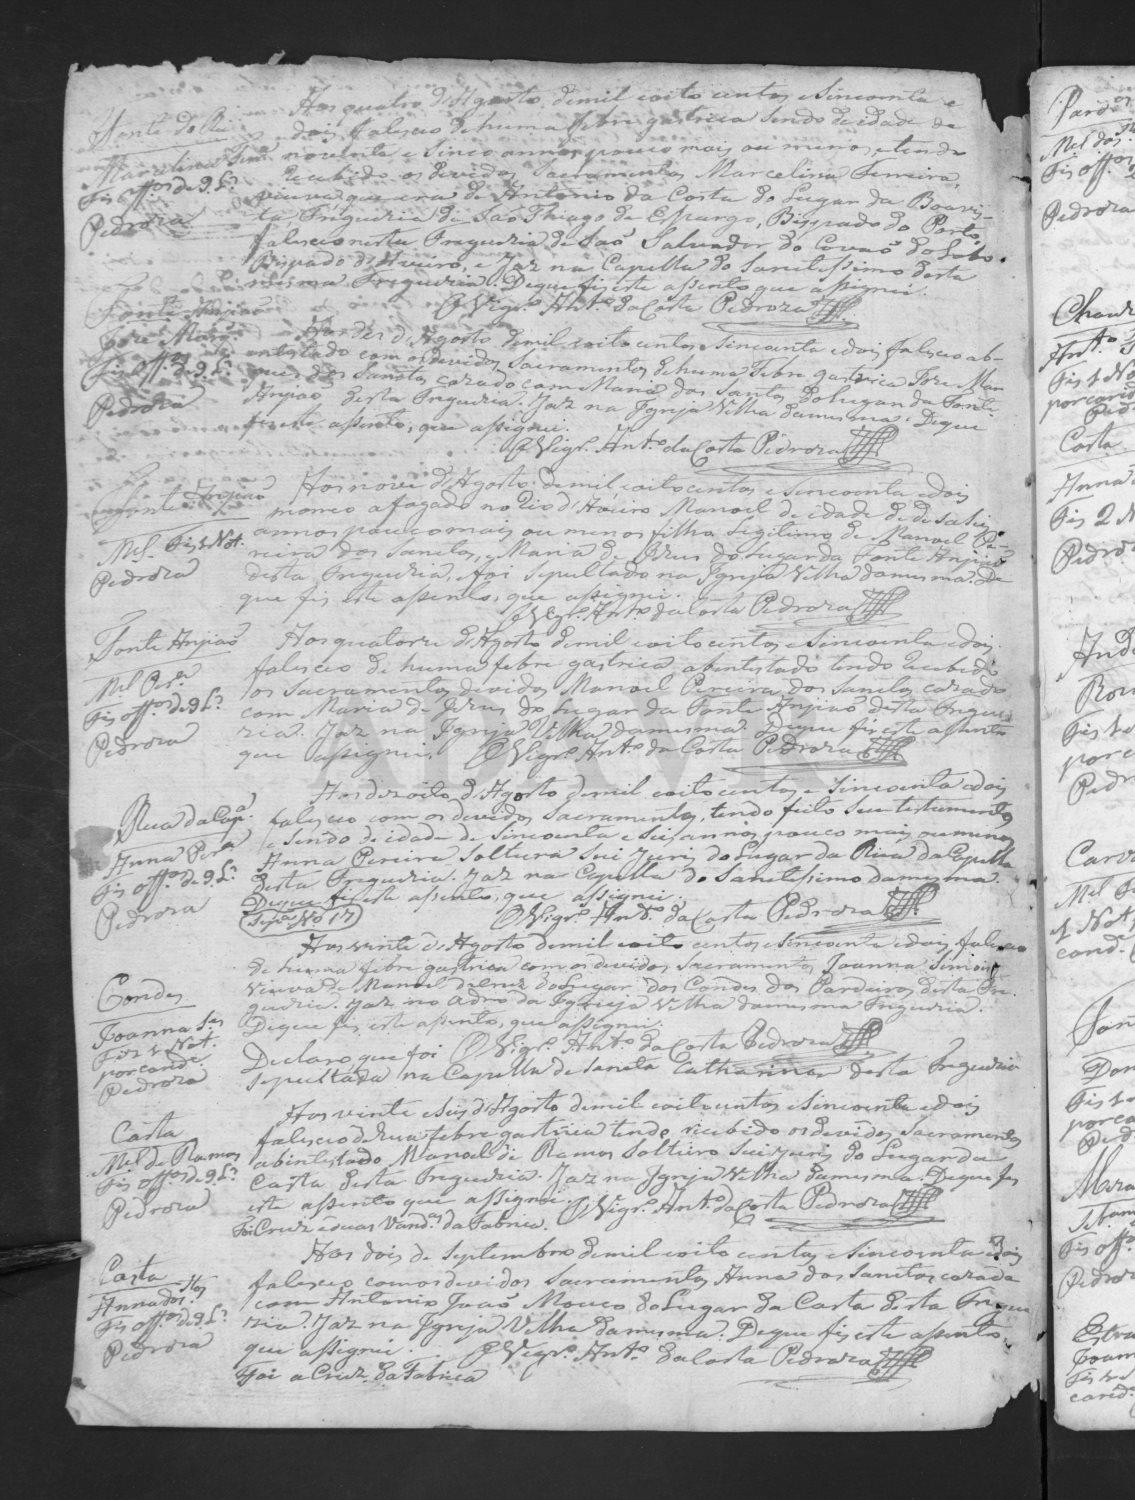 Fonte do Rei
Marcelina Ferra
Fis offos de 9 Lç.
Pedroza
Aos quatro d'Agosto de mil oito centos e sincoenta e
dois, faleceo de huma febre gastrica sendo de idade de
noventa e sinco annos pouco mais ou menos, e tendo
recebido os devidos Sacramentos, Marcelina Ferreira,
viuva que era de Antonio da Costa do Lugar da Boavis-
ta, Freguezia de São Thiago de Espargo, Bispado do Porto,
faleceo nesta Freguezia de São Salvador do Covaõ do Lobo,
Bispado d'Aveiro, e Jaz na Capella do Santissimo desta
mesma Freguezia. Deque fis este assento que assignei.
O Vigr.º Ant.º da Costa Pedroza
Fonte Anjiaõ
Joze Marq.
Fis off.os de 9 Lç.
Pedroza
Aos dez d'Agosto de mil oito centos e sincoenta e dois, faleceo ab-
intestado com os devidos Sacramentos de huma febre gastrica Joze Mar
ques dos Santos cazado com Maria dos Santos do Lugar da Fonte
Anjiaõ desta Freguezia. Jaz na Igreja Velha da mesma. Deque
fis este assento, que assignei.
O Vigr.º Ant.º da Costa Pedroza
Fonte Anjiaõ
Mel. Fis 1 Not.
Pedroza
Aos nove d'Agosto de mil oito centos e sincoenta e dois
morreo afogado no Rio d'Aveiro Manoel de idade de deseseis
annos pouco mais ou menos filho Legitimo de Manoel Pe-
reira dos Santos, e Maria de Jezus do Lugar da Fonte Anjiaõ
desta Freguezia, e foi sepultado na Igreja Velha da mesma. De
que fis este assento, que assignei.
O Vigr.º Ant.º da Costa Pedroza
Fonte Anjiaõ
Mel Per.ª
Fis off.os de 9 Lç.
Pedroza
Aos quatorze d'Agosto de mil oito centos e sincoenta e dois
faleceo de huma febre gastrica abintestado tendo recebido
os Sacramentos devidos Manoel Pereira dos Santos cazado
com Maria de Jezus do Lugar da Fonte Anjiaõ desta Fregue
zia. Jaz na Igreja Velha da mesma. Deque fis este assento
que assignei. O Vigr.º Ant.º da Costa Pedroza
ADAVR
Rua da Cap.ª
Anna Per.ª
Fis off.os de 9 Lç.
Pedroza
Aos dezoito d'Agosto de mil oito centos e sincoenta e dois
faleceo com os devidos Sacramentos, tendo feito seu testamento,
e sendo de idade de sincoenta e seis annos pouco mais, ou menos
Anna Pereira Solteira Sui Juris do Lugar da Rua da Capella
desta Freguezia. Jaz na Capella do Santissimo da mesma.
Deque fis este assento, que assignei.
Sep.ª Nº 17
O Vigr.º Ant.º da Costa Pedroza
Condes
Joanna Ses
Fis 1 Not.
por carid.e
Pedroza
Aos vinte d'Agosto de mil oito centos e sincoenta e dois, faleceo
de huma febre gastrica com os devidos Sacramentos Joanna Simois
Viuva de Manoel da Cruz do Lugar dos Condes dos Pardeiros desta Fre
guezia. Jaz no Adro da Igreja Velha da mesma Freguezia.
Deque fis este assento, que assignei.
O Vigr.º Ant.º da Costa Pedroza
Declaro que foi
sepultada na Capella de Santa Catharina desta Freguezia
Casta
Mel de Ramos
Fis off.os de 9 Lç.
Pedroza
Aos vinte e seis d'Agosto de mil oito centos e sincoenta e dois
faleceo de hua febre gastrica tendo recebido os devidos Sacramentos
abintestado Manoel de Ramos Solteiro Sui juris do Lugar da
Casta desta Freguezia. Jaz na Igreja Velha da mesma. Deque fis
este assento que assignei. O Vigr.º Ant.º da Costa Pedroza
Foi Cruz e duas Vand.as da Fabrica.
Casta
Anna dos Stos
Fis off.os de 9 Lç.
Pedroza
Aos dois de Septembro de mil oito centos e sincoenta e dois
faleceo com os devidos Sacramentos Anna dos Santos cazada
com Antonio Joaõ Mouco do Lugar da Casta desta Fregue
zia. Jaz na Igreja Velha da mesma. Deque fis este assento,
que assignei. O Vigr.º Ant.º da Costa Pedroza
Foi a Cruz da Fabrica
Pedroza
Casta
Anna
Fis 2 N
Pedroza
Fis 1
Pedr
Mel